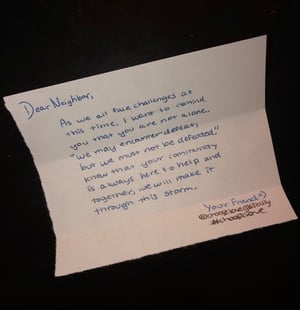 Dear Neighbor,
As we all face challenges at
this time, I want to remind
you that you are not alone.
"We may encounter defeat,
but we must not be defeated."
Know that your community
is always here to help and
together, we will make it
through this storm.
Your Friend :)
#chooselove